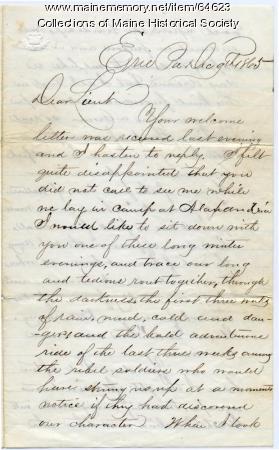 https://www.mainememory.net/item/64623
Collections of Maine Historical Society
Erie Pa Dec 9th 1865
Dear Lieut
Your welcome
letter was received last evening
and I hasten to reply. I felt
quite disappointed that you
did not call to see me while
we lay in camp at Alexandria
I would like to sit down with
you one of these long winter
evenings, and trace our long
and tedious rout together, through
the darkness, the first three nights
of rain, mud, cold and dan-
gers and the bold adventurous
rise of the last three weeks among
the rebel soldiers who would
have strung us up at a moments
notice if they had discovered
our character When I look